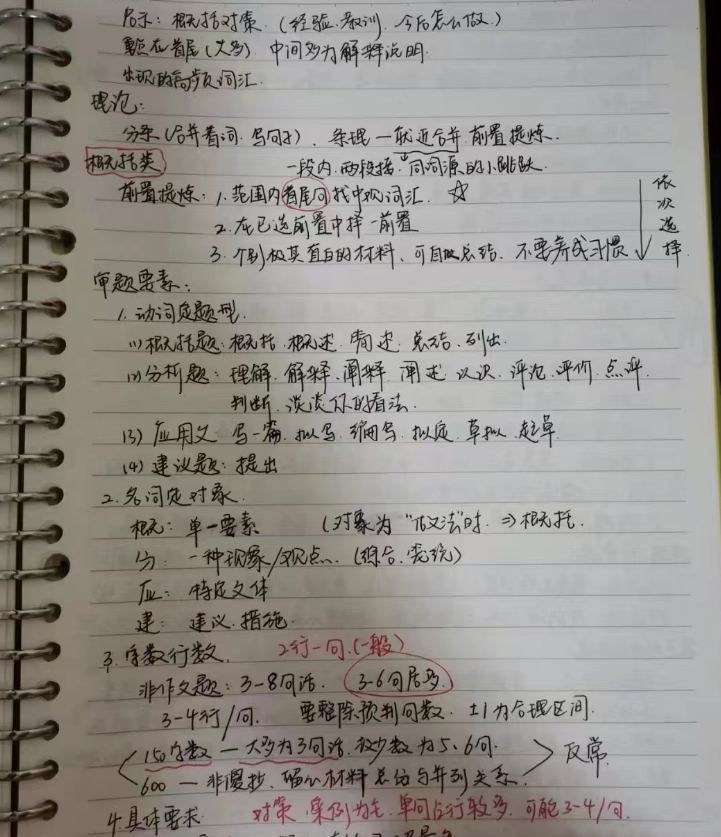 启示：概括对策.（经验.教训.今后怎么做.）
重点在首尾（大多）中间多为解释说明.
出现的高频词汇.
理论：
分条（合并着词.写句子）.条理一就近合并.前置提炼.
概括类
一段内.两段接.同词源的小跳跃.
前置提炼：1.范围内首尾句找中观词汇.☆
2.在已选前置中择一前置
3.个别极其直白的材料、可自做总结.不要养成习惯
依次选择
审题要素：
1.动词定题型.
(1)概括题：概括.概述.简述.总结.列出.
(2)分析题：理解.解释.阐释.阐述.认识.评论.评价.点评.
判断.谈谈你的看法.
(3)应用文 写一篇.拟写.编写.拟定.草拟.起草.
(4)建议题：提出
2.名词定对象.
概：单一要素 （对象为“做法”时.⇒概括.
分：一种现象/观点...（综合.笼统）
应：特定文体
建：建议.措施.
3.字数行数. 2行一句.（一般）
非作文题：3-8句话. 3-6句居多.
3-4行/句. 要整除预判句数.±1为合理区间.
150字数—大多为3句话.极少数为5、6句.
600—非慢抄.留心材料总分与并列关系.
反常.
4.具体要求. 对策.案例为主.单句占行较多.可能3-4/句.